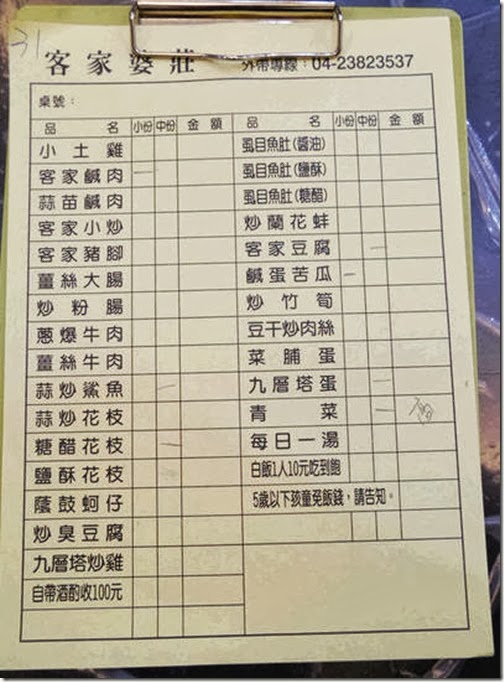 31
客家婆莊 外帶專線：04-23823537
桌號：
品名 小份 中份 金額
小土雞
客家鹹肉 一
蒜苗鹹肉
客家小炒
客家豬腳
薑絲大腸
炒粉腸
蔥爆牛肉
薑絲牛肉
蒜炒鯊魚 一
蒜炒花枝
糖醋花枝 一
鹽酥花枝
蔭鼓蚵仔
炒臭豆腐
九層塔炒雞
自帶酒酌收100元
品名 小份 中份 金額
虱目魚肚(醬油)
虱目魚肚(鹽酥)
虱目魚肚(糖醋)
炒蘭花蚌
客家豆腐 一
鹹蛋苦瓜 一
炒竹筍
豆干炒肉絲
菜脯蛋
九層塔蛋 一
青菜 一
每日一湯
白飯1人10元吃到飽
5歲以下孩童免飯錢，請告知。